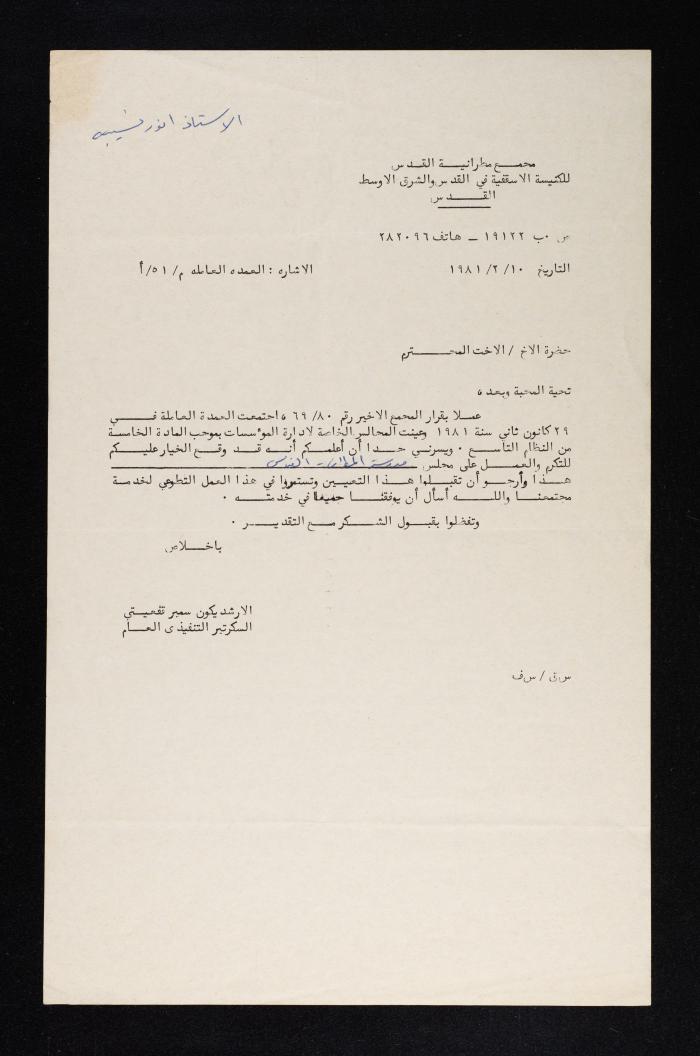 الاستاذ انور نسيبه
مجمع مطرانية القدس
للكنيسة الاسقفية في القدس والشرق الاوسط
القدس
ص ٠ب ١٩١٢٢ – هاتف ٢٨٢٠٩٦
التاريخ ١٩٨١/٢/١٠ الاشاره : العمده العامله م/٥١/أ
حضرة الاخ / الاخت المحترم
تحية المحبة وبعد ٥
عملا بقرار المجمع الاخير رقم ٦٩/٨٠ ٥ اجتمعت العمدة العاملة في
٢٩ كانون ثاني سنة ١٩٨١ وعينت المجالس الخاصة لادارة المؤسسات بموجب المادة الخامسة
من النظام التاسع ٠ ويسرني جدا أن أعلمكم أنه قد وقع الخيار عليكم
للتكرم والعمل على مجلس مدرسة المطران القدس
هذا وأرجو أن تقبلوا هذا التعيين وتستمروا في هذا العمل التطوعي لخدمة
مجتمعنا والله أسأل أن يوفقنا جميعا في خدمته ٠
وتفضلوا بقبول الشكر مع التقدير ٠
باخلاص
الارشديكون سمير قفعيتي
السكرتير التنفيذي العام
س ق / س ف